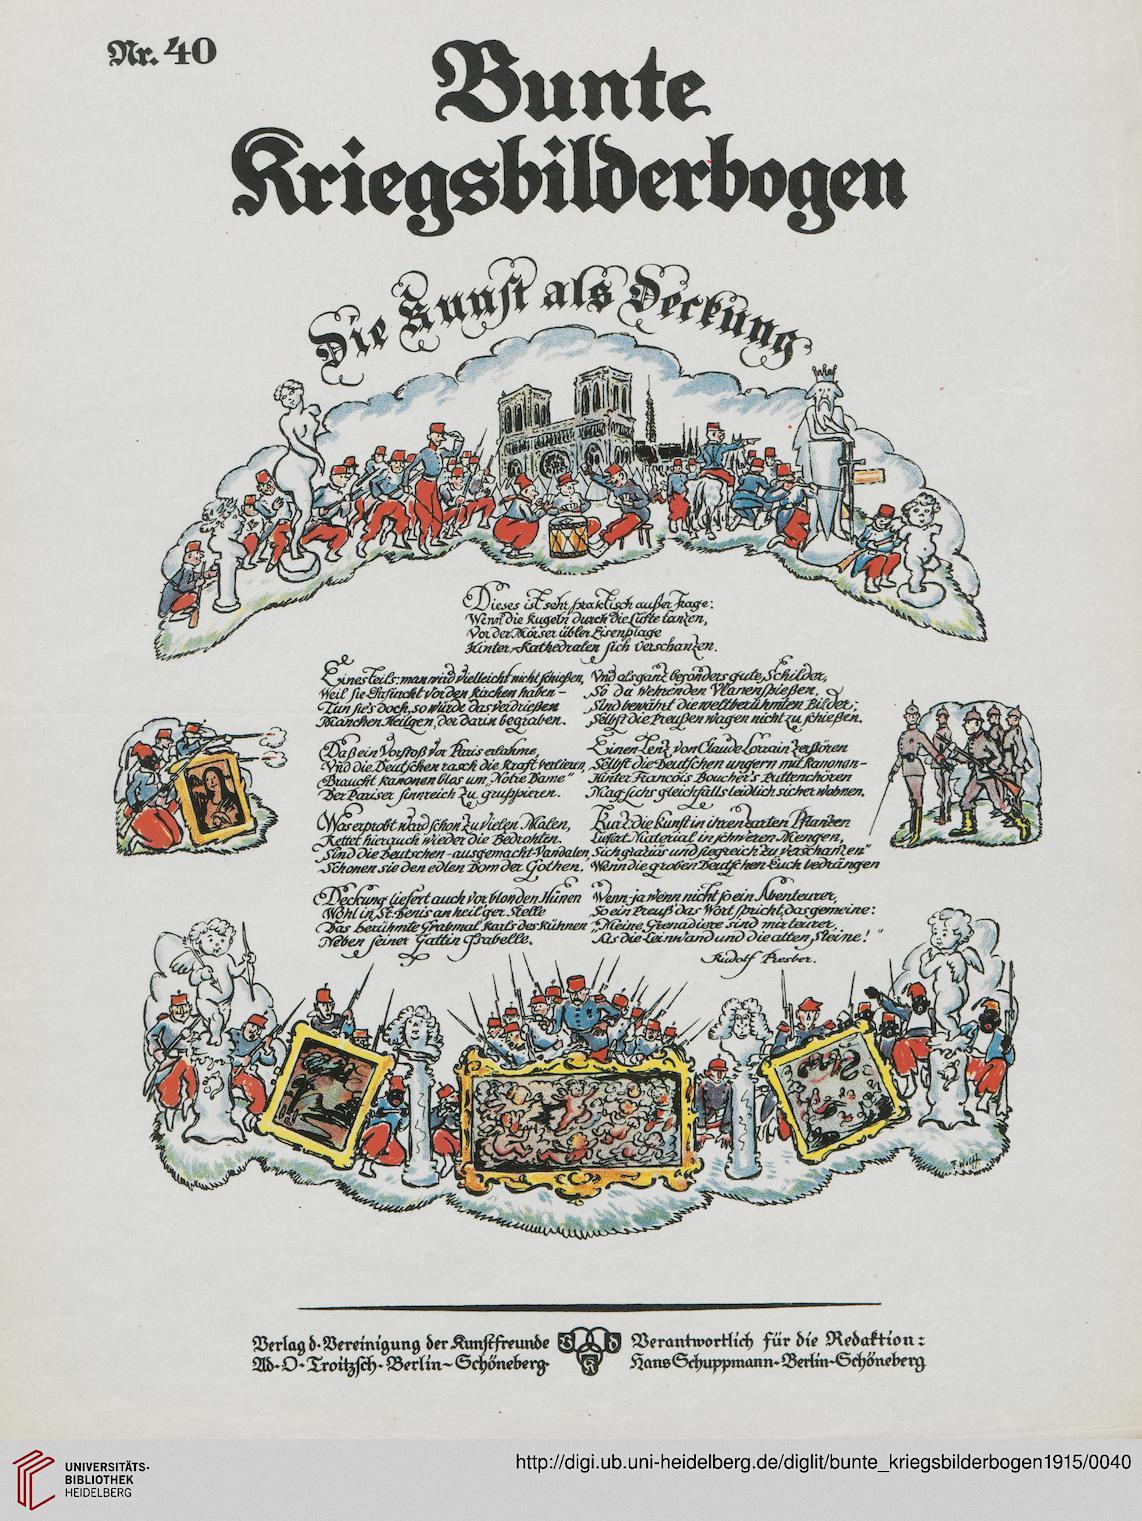 Nr. 40
Bunte
Kriegsbilderbogen
Die Kunst als Deckung
Dieses ist sehr praktisch außer Frage:
Wenn die Kugeln durch die Lüfte tanzen,
Vor der Mörser übler Eisenplage
Hinter Kathedralen sich verschanzen.
Einesteils: man wird vielleicht nicht schießen,
Weil sie Ehrfurcht vor den Kirchen haben –
Tun sie's doch, so würde das verdrießen
Manchen Heilgen, der darin begraben.
Daß ein Vorstoß vor Paris erlahme,
Und die Deutschen rasch die Kraft verlieren,
Braucht Kanonen blos um „Notre Dame"
Der Pariser sinnreich zu gruppieren.
Was erprobt ward schon zu vielen Malen,
Rettet hier auch wieder die Bedrohten.
Sind die Deutschen – ausgemacht – Vandalen,
Schonen sie den edlen Dom der Gothen.
Deckung liefert auch vor blonden Hünen
Wohl in St. Denis an heil'ger Stelle
Das berühmte Grabmal Karls des Kühnen
Neben seiner Gattin Isabelle.
Und als ganz besonders gute Schilder,
So da wehrenden Ulanenspießen,
Sind bewährt die weltberühmten Bilder;
Selbst die Preußen wagen nicht zu schießen.
Einen Lenz von Claude Lorrain zerstören
Selbst die Deutschen ungern mit Kanonen –
Hinter Francois Boucher's Puttenchören
Mag sichs gleichfalls leidlich sicher wohnen.
Kurz: die Kunst in ihren zarten Pflanzen
Liefert Material in schweren Mengen,
Sich graziös und siegreich zu verschanzen"
Wenn die groben Deutschen Euch bedrängen
Wenn – ja wenn nicht so ein Abenteurer,
So ein Preuß' das Wort spricht, das gemeine:
„Meine Grenadiere sind mir teurer,
Als die Leinwand und die alten Steine!"
Rudolf Presber.
F. Wolff
Verlag d. Vereinigung der Kunstfreunde
Ad. O. Troitzsch. Berlin – Schöneberg.
V d K
Verantwortlich für die Redaktion:
Hans Schuppmann – Berlin-Schöneberg
UNIVERSITÄTS-
BIBLIOTHEK
HEIDELBERG
http://digi.ub.uni-heidelberg.de/diglit/bunte_kriegsbilderbogen1915/0040